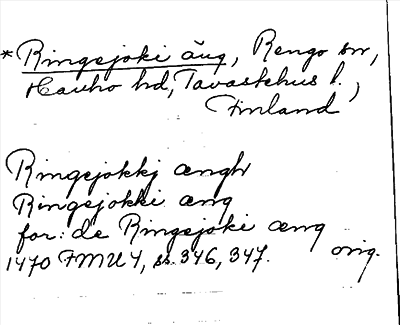 *Ringsjoki äng, Rengo sn,
Hauho hd, Tavastehus l.,
Finland
Ringsjokkj ængh
Ringsjokki æng
for: de Ringsjoki æng
1470 FMU 4, ss. 346, 347. orig.